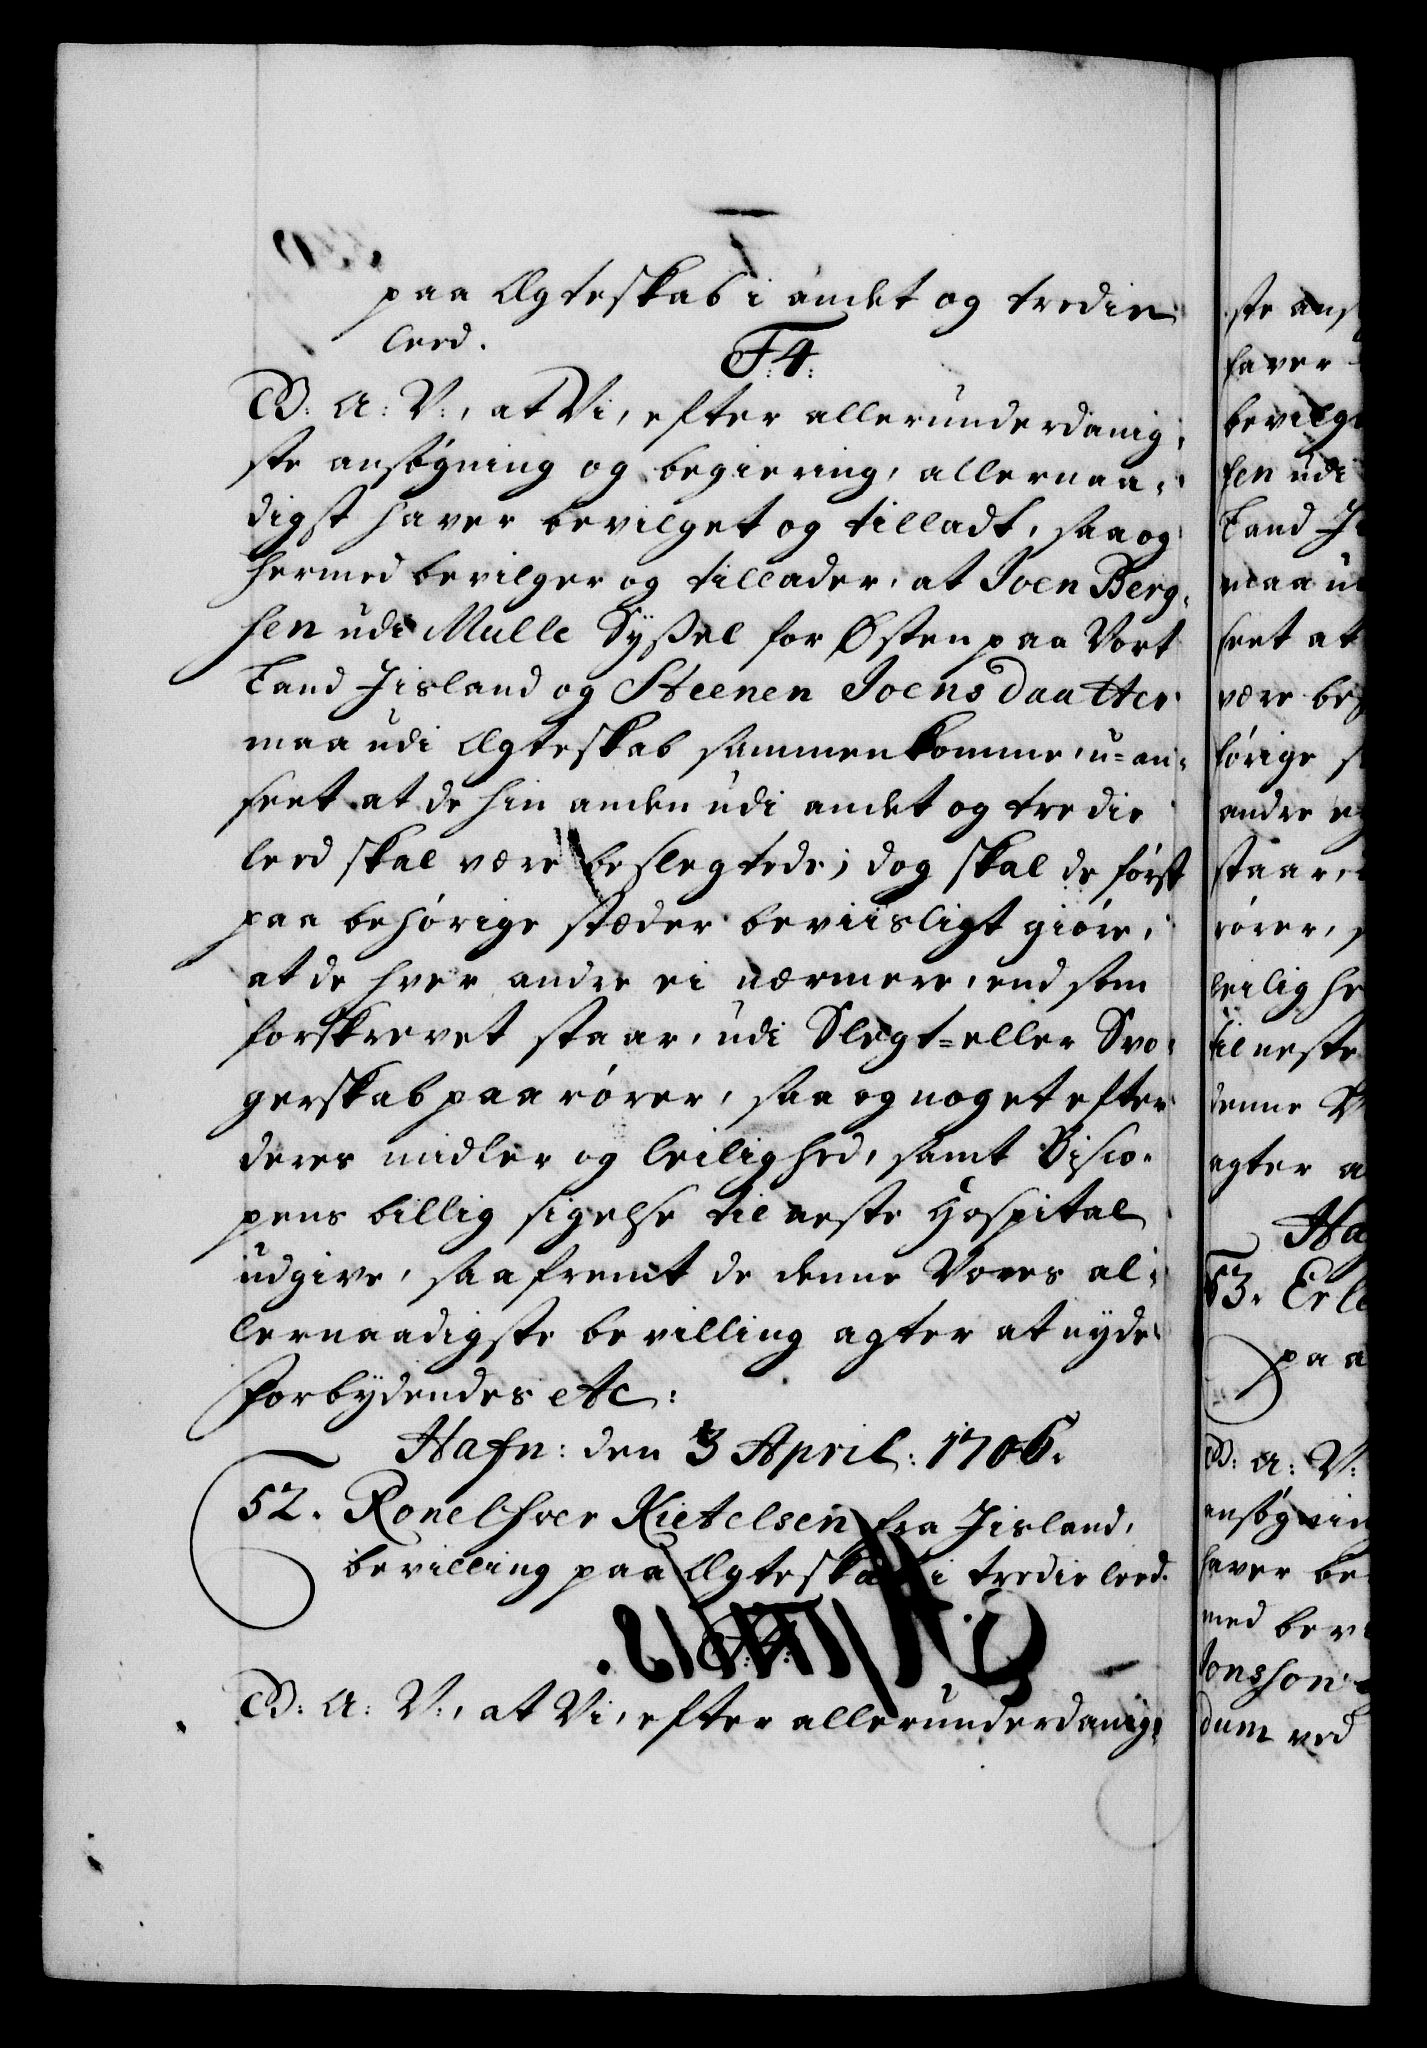 paa Ægteskab i andet og tredie
leed.
F:4:
G: A: V:, at Vi, efter allerunderdanig,
ste ansøgning og begiering, allernaa,
digst haver bevilget og tilladt, saa og
hermed bevilger og tillader, at Joen Berg,
sen udi Mulle Syßel for Østen paa Vort
Land Jisland og Steenen Joensdaatter
maa udi Ægteskab sammenkomme, u=an,
seet at de hin anden udi andet og tredie
leed skal være beslegtede; dog skal de først
paa behørige stæder beviisligt giøre,
at de hver andre ei nærmere, end som
forskrevet staar, udi Slegt= eller Svo,
gerskab paarører, saa og noget efter
deres midler og leilighed, samt Bisco,
pens billig sigelse til neste Hospital
udgive, saafremt de denne Vores al,
lernaadigste bevilling agter at nyde
Forbydendes etc:
Hafn: den 3 April: 1706.
52. Ronelfver Kietelsen fra Jisland,
bevilling paa Ægteskab i tredie leed.
G: A: V:, at Vi, efter allerunderdanig,
ste ans
haver
bevilg
sen udi
Land Ji
maa u
seet at
være be
hørige s
andre e
staar,
rører, s
leilighe
til neste
denne V
agter a
Ha
53. Erl
paa
G: A: V:
ansøgnin
haver be
med bev
Jonsson
dum ved